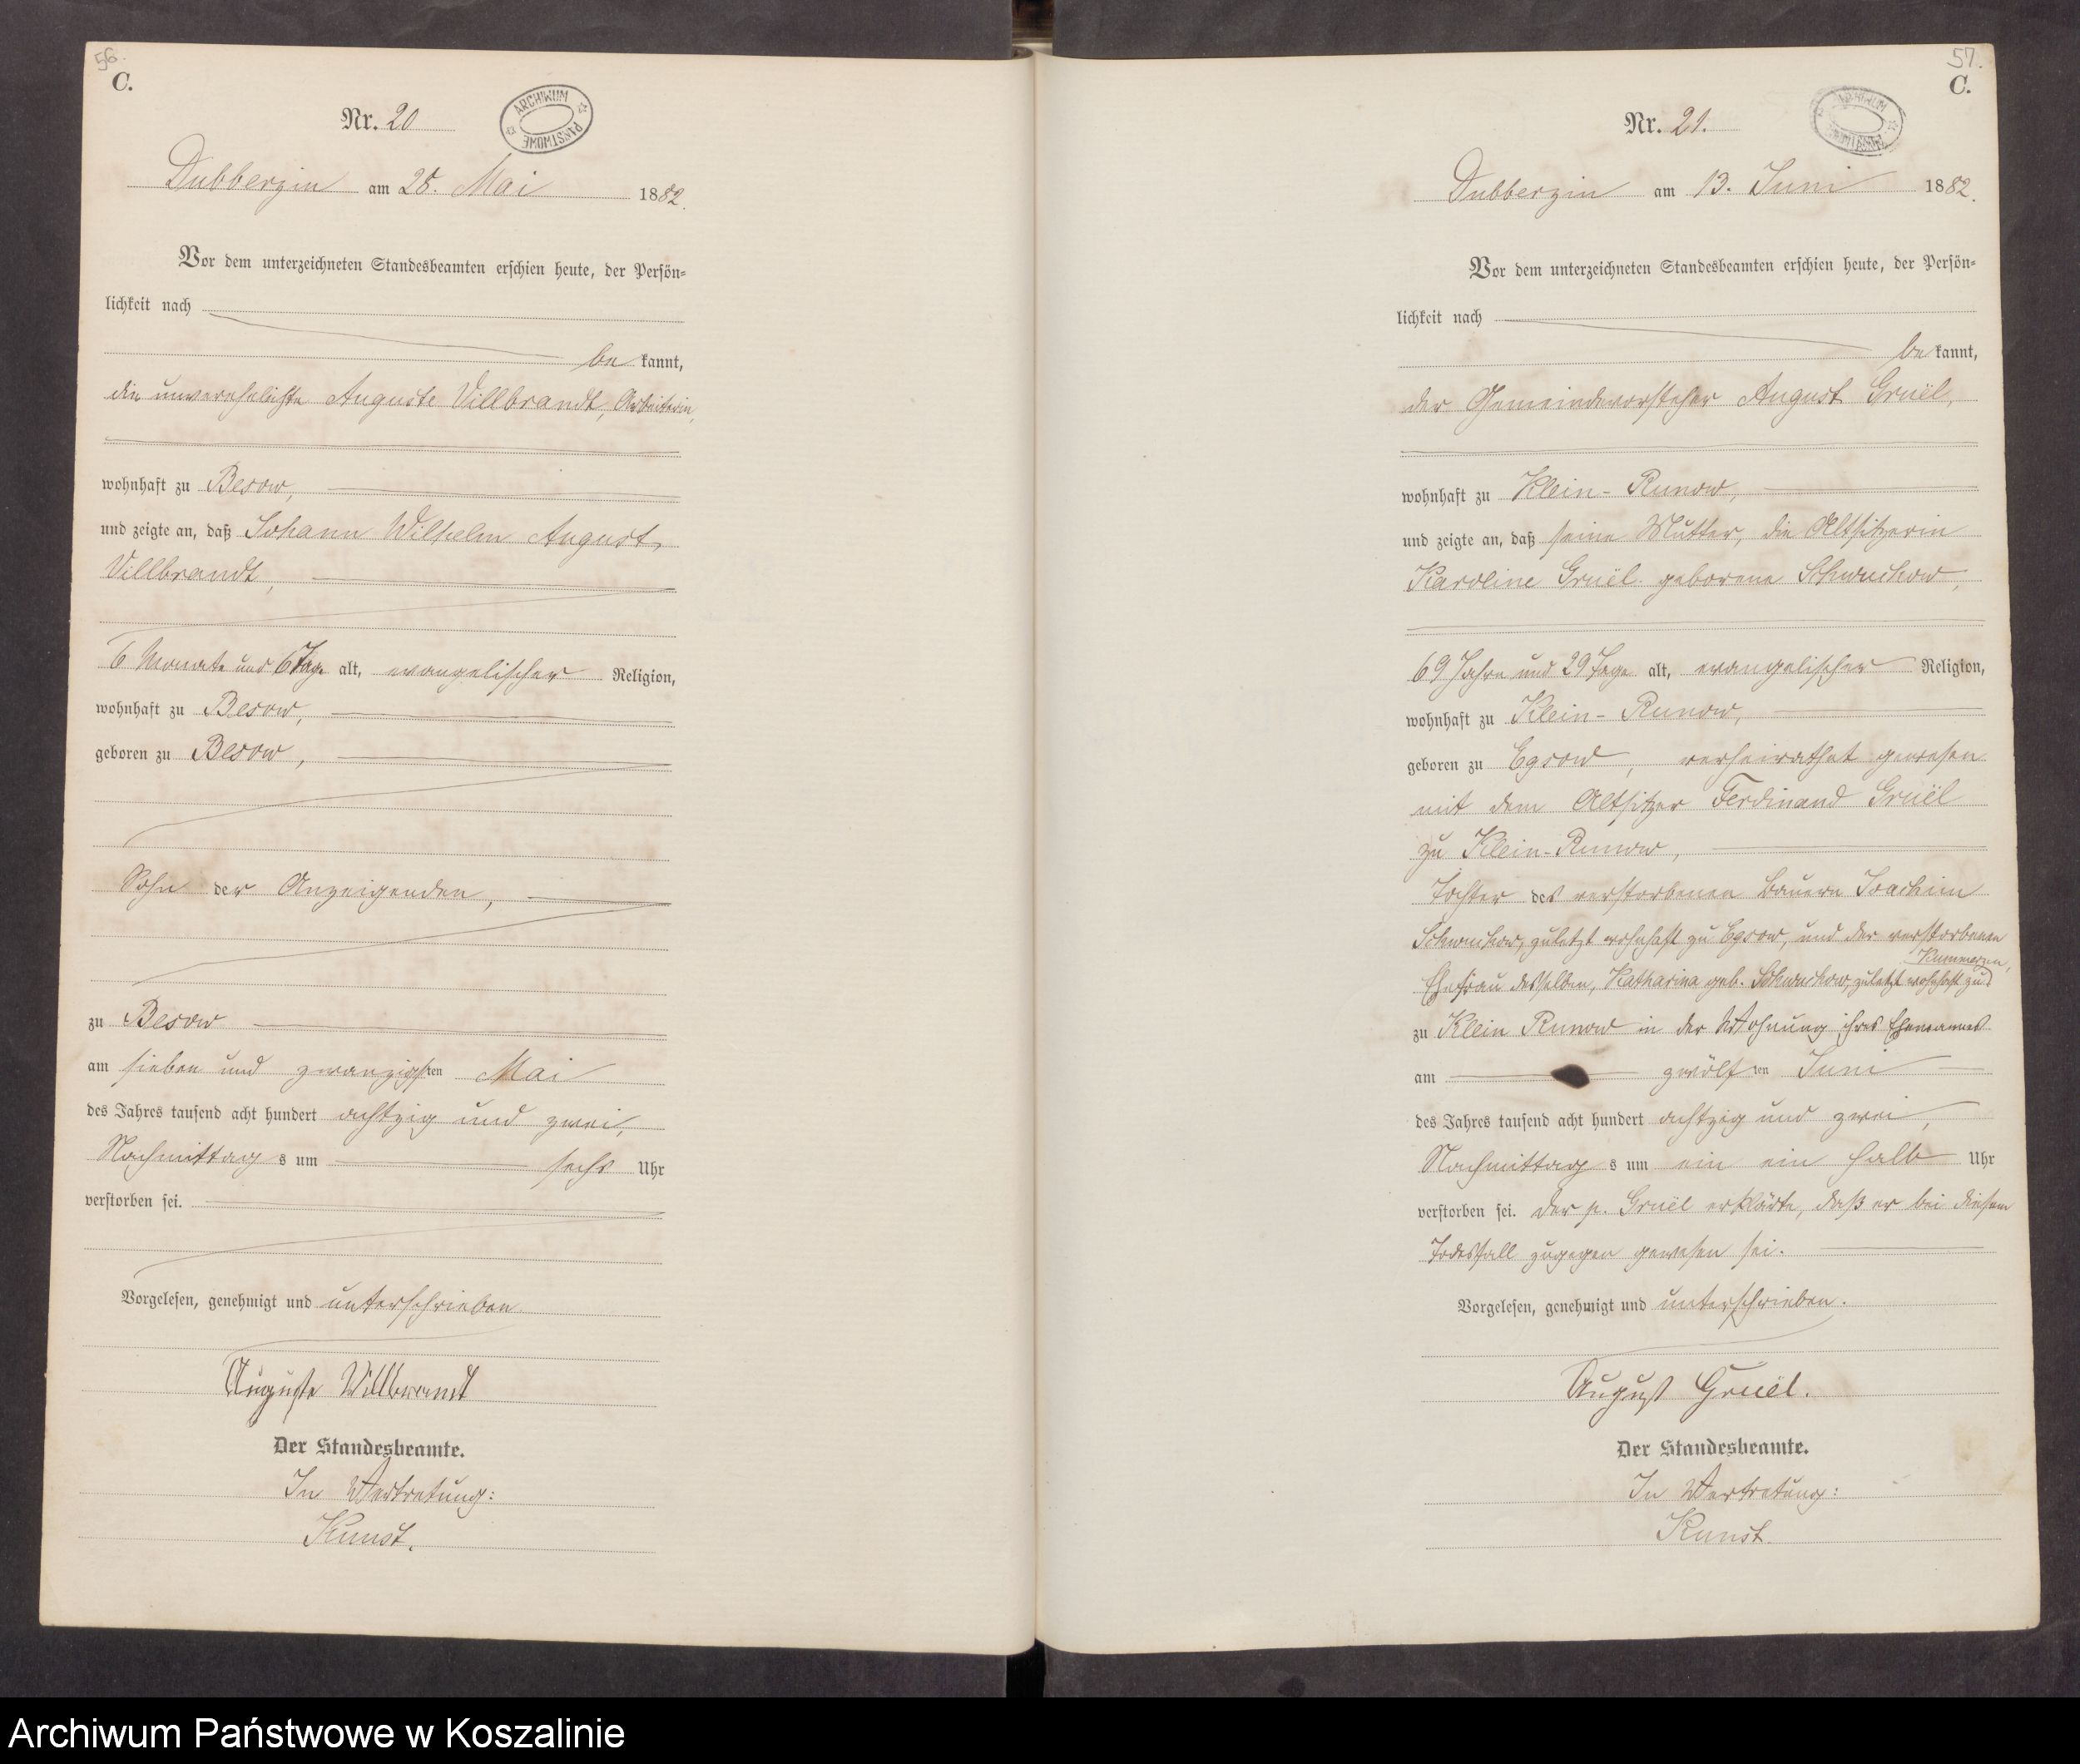 56.
C.
Nr. 20
ARCHIWUM PAŃSTWOWE
Dubberzin am 28. Mai 1882.
Vor dem unterzeichneten Standesbeamten erschien heute, der Persön-
lichkeit nach
be kannt,
die unverehelichte Auguste Villbrandt, Arbeiterin,
wohnhaft zu Besow,
und zeigte an, daß Johann Wilhelm August
Villbrandt,
6 Monate und 6 Tage alt, evangelischer Religion,
wohnhaft zu Besow,
geboren zu Besow,
Sohn der Anzeigenden,
zu Besow
am sieben und zwanzigsten Mai
des Jahres tausend acht hundert achtzig und zwei,
Nachmittags um sechs Uhr
verstorben sei.
Vorgelesen, genehmigt und unterschrieben
Auguste Villbrandt
Der Standesbeamte.
In Vertretung:
Kunst.
57.
C.
Nr. 21.
ARCHIWUM PAŃSTWOWE
Dubberzin am 13. Juni 1882.
Vor dem unterzeichneten Standesbeamten erschien heute, der Persön-
lichkeit nach
be kannt,
der Gemeindevorsteher August Gruël,
wohnhaft zu Klein-Runow,
und zeigte an, daß seine Mutter, die Altsitzerin
Karoline Gruël geborene Schwuchow,
69 Jahre und 29 Tage alt, evangelischer Religion,
wohnhaft zu Klein-Runow,
geboren zu Egsow, verheirathet gewesen
mit dem Altsitzer Ferdinand Gruël
zu Klein-Runow,
Tochter des verstorbenen Bauern Joachim
Schwuchow, zuletzt wohnhaft zu Egsow, und der verstorbenen
Kummerzin,
Ehefrau desselben, Katharina geb. Schwuchow, zuletzt wohnhaft zu
zu Klein Runow in der Wohnung ihres Ehemannes
am zwölften Juni
des Jahres tausend acht hundert achtzig und zwei,
Nachmittags um ein ein halb Uhr
verstorben sei. Der p. Gruël erklärte, daß er bei diesem
Todesfall zugegen gewesen sei.
Vorgelesen, genehmigt und unterschrieben.
August Gruël.
Der Standesbeamte.
In Vertretung:
Kunst.
Archiwum Państwowe w Koszalinie